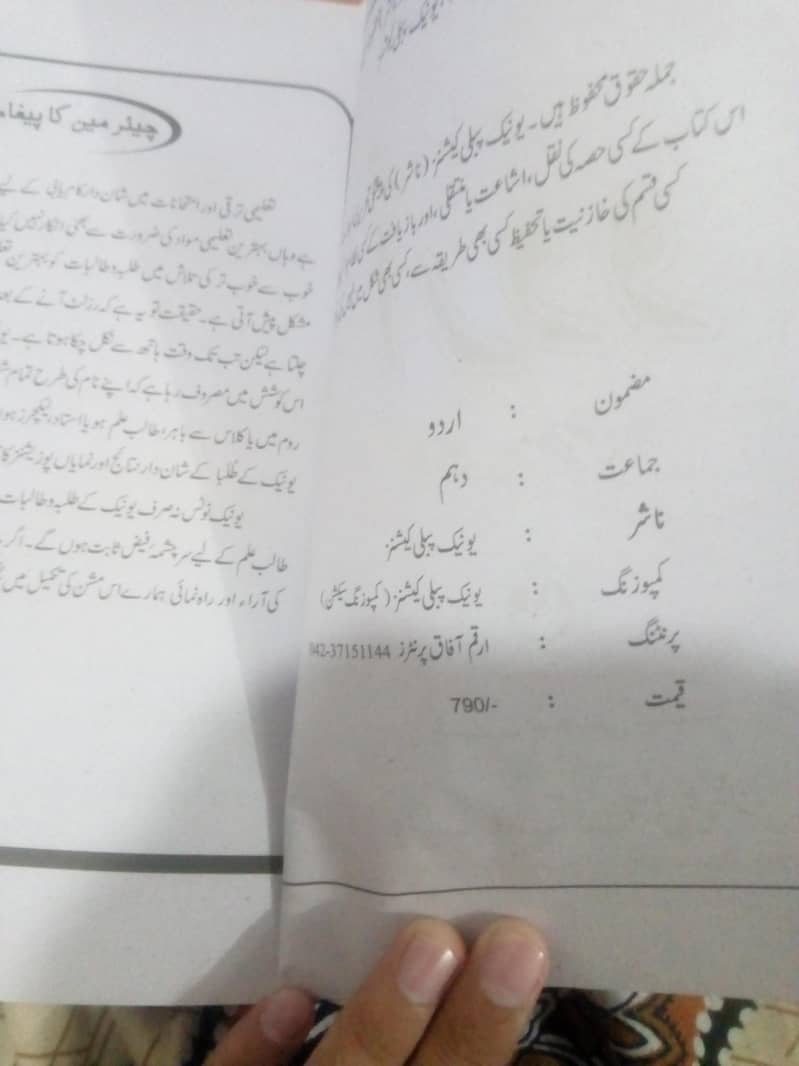 جملہ حقوق محفوظ ہیں۔ یونیک پبلی کیشنز (ناشر) کی پیشگی
اس کتاب کے کسی حصہ کی نقل، اشاعت یا منتقلی، اور بازیافت کے کسی
کسی قسم کی خازنیت یا تحفیظ کسی بھی طریقہ سے، کسی بھی شکل میں
مضمون : اردو
جماعت : دہم
ناشر : یونیک پبلی کیشنز
کمپوزنگ : یونیک پبلی کیشنز (کمپوزنگ سیکشن)
پرنٹنگ : ارقم آفاق پرنٹرز 042-37151144
قیمت : 790/-
چیئرمین کا پیغام
تعلیمی ترقی اور امتحانات میں شان دار کامیابی کے لیے
ہے وہاں بہترین تعلیمی مواد کی ضرورت سے بھی انکار نہیں کیا
خوب سے خوب تر کی تلاش میں طلبہ و طالبات کو بہترین
مشکل پیش آتی ہے۔ حقیقت تو یہ ہے کہ رزلٹ آنے کے بعد
چلتا ہے لیکن تب تک وقت ہاتھ سے نکل چکا ہوتا ہے۔
اس کوشش میں مصروف رہا ہے کہ اپنے نام کی طرح تمام
روم میں یا کلاس سے باہر، طالب علم ہو یا استاد، لیکچرز ہوں
یونیک کے طلبا کے شان دار نتائج اور نمایاں پوزیشنز کا
یونیک نوٹس نہ صرف یونیک کے طلبہ و طالبات
طالب علم کے لیے سرچشمۂ فیض ثابت ہوں گے۔ اگر
کی آراء اور راہ نمائی ہمارے اس مشن کی تکمیل میں